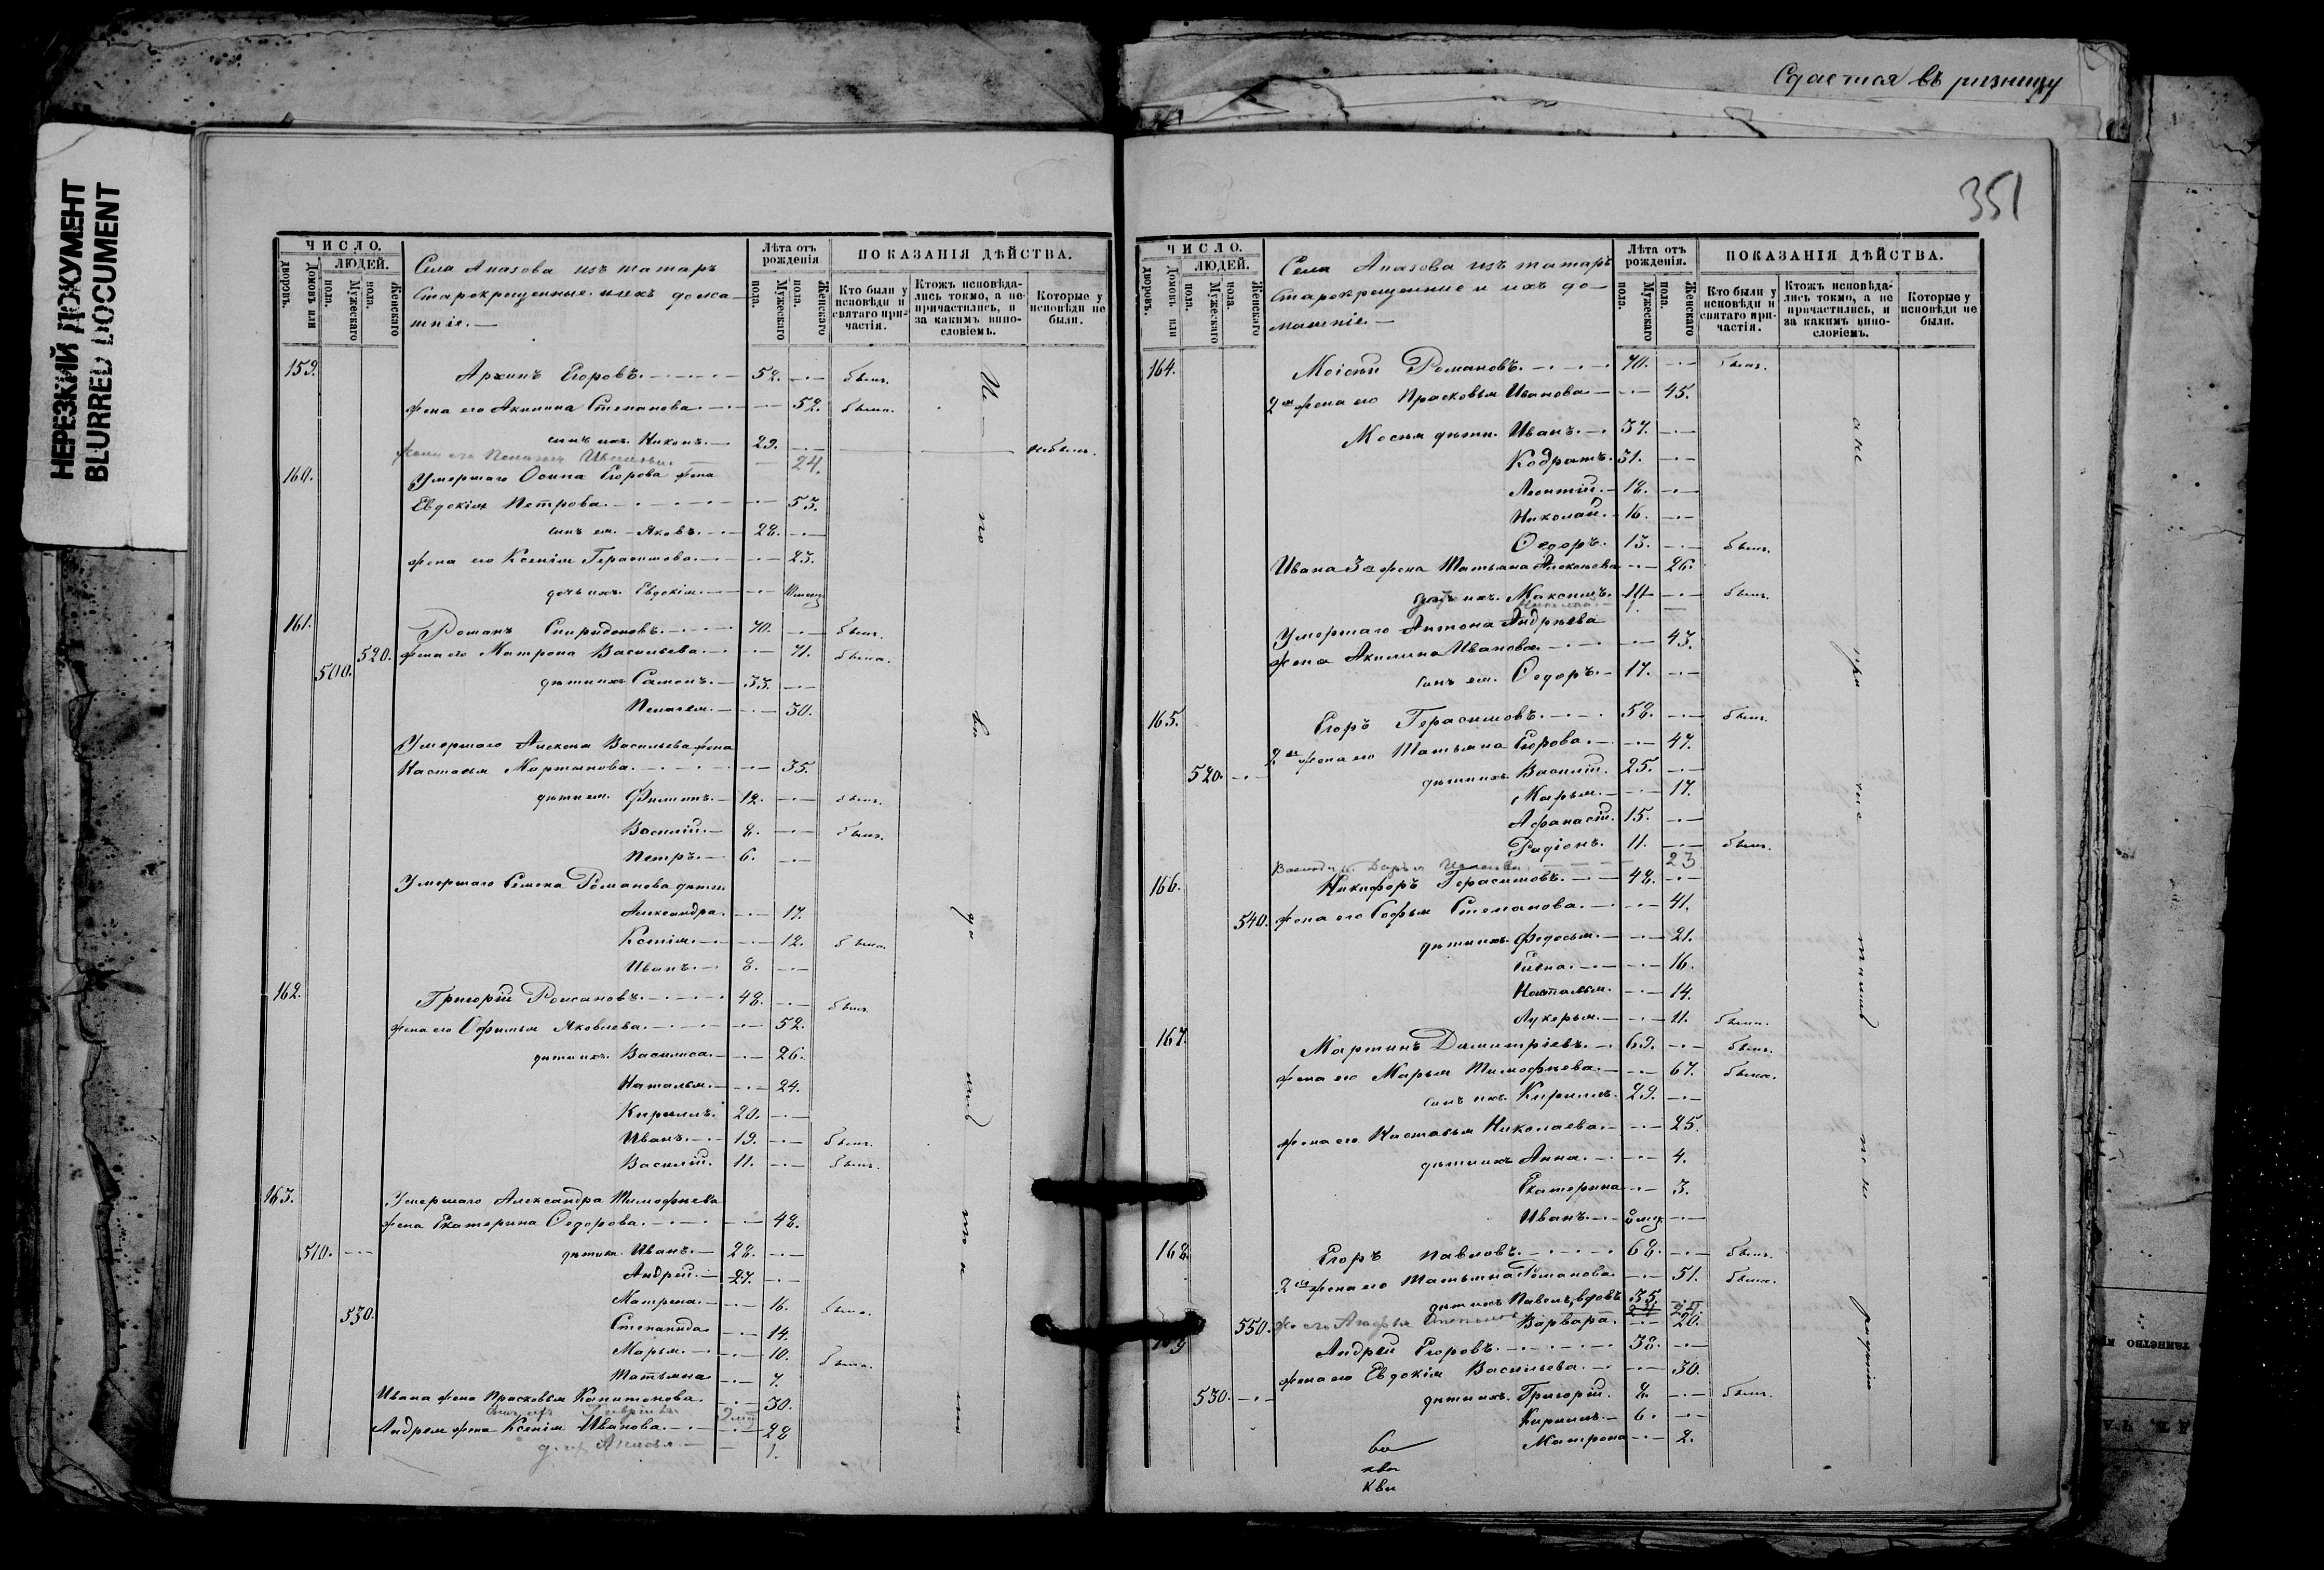 Сдается въ ризницу
НЕРЕЗКИЙ ДОКУМЕНТ
BLURRED DOCUMENT
ЧИСЛО.
ЛЮДЕЙ.
Домовъ или дворовъ.
Мужескаго пола.
Женскаго пола.
Села Апазова изъ татаръ
старокрещенные и ихъ дома-
шніе.—
Лѣта отъ рожденія
Мужескаго пола.
Женскаго пола.
ПОКАЗАНІЯ ДѢЙСТВА.
Кто были у исповѣди и святаго причастія.
Ктожъ исповѣдались токмо, а не причастились, и за какимъ винословіемъ.
Которые у исповѣди не были.
159. Архипъ Егоровъ. 52. былъ.
жена его Акилина Степанова. 52. была.
сынъ ихъ Никонъ. 29. небылъ.
жена его Пелагея 24.
160. Умершаго Осипа Егорова жена
Евдокія Петрова. 53.
сынъ ея Яковъ. 28.
жена его Ксенія Герасимова. 23.
дочь ихъ Евдокія.
161. Романъ Спиридоновъ. 70. былъ.
500. 520. жена его Матрона Васильева. 71. была.
дѣти ихъ Самонъ. 33.
Пелагея. 30.
Умершаго Алексѣя Васильева жена
Настасья Мартынова. 35.
дѣти ея Филиппъ. 12. былъ.
Василій. 8. былъ.
Петръ. 6.
Умершаго Семена Романова дѣти
Александра. 17.
Ксенія. 12. была.
Иванъ. 8.
162. Григорій Романовъ. 48. былъ
жена его Офимья Яковлева. 52.
дѣти ихъ Василиса. 26.
Наталья. 24.
Кириллъ. 20.
Иванъ. 19. былъ.
Василій. 11. былъ.
163. Умершаго Александра Тимофѣева
жена Екатерина Ѳедорова. 48.
510. дѣти их. Иванъ. 28.
Андрей. 27.
Матрена. 16. была.
530. Степанида 14.
Марья. 10. была.
Татьяна 7.
Ивана жена Прасковья Капитонова. 30.
Андрея жена Ксенія Иванова. 28
1.
351
ЧИСЛО.
ЛЮДЕЙ.
Домовъ или дворовъ.
Мужескаго пола.
Женскаго пола.
Села Апазова изъ татаръ
старокрещенные и ихъ до-
машніе.—
Лѣта отъ рожденія.
Мужескаго пола.
Женскаго пола.
ПОКАЗАНІЯ ДѢЙСТВА.
Кто были у исповѣди и святаго причастія.
Ктожъ исповѣдались токмо, а не причастились, и за какимъ винословіемъ.
Которые у исповѣди не были.
164. Моісѣй Романовъ. 70. былъ.
2я жена его Прасковья Иванова 45.
Мосѣя дѣти. Иванъ. 37.
Кодратъ. 31.
Леонтій. 18.
Николай. 16.
Ѳедоръ. 13. былъ.
Ивана 3я жена Татьяна Алексѣева 26.
ихъ Максимъ. былъ.
Умершаго Антона Андрѣева
жена Акилина Иванова. 43.
сынъ ея. Ѳедоръ. 17.
165. Егоръ Герасимовъ. 58. былъ.
2я жена его Татьяна Егорова. 47.
520. дѣти ихъ Василій. 25.
Марья. 17.
Афанасій. 15.
Радіонъ. 11. былъ.
Дарья 23
166. Никифоръ Герасимовъ. 48.
540. жена его Софья Степанова. 41.
дѣти ихъ Федосья. 21.
Елена. 16.
Настасья. 14.
Лукерья. 11. была.
167. Мартинъ Димитріевъ. 69. былъ.
жена его Марья Тимофѣева. 67. была.
сынъ ихъ Кириллъ. 29.
жена его Настасья Николаева. 25.
дѣти ихъ Анна. 4.
Екатерина 3.
Иванъ.
168. Егоръ Павловъ. 68. былъ.
2я жена его Татьяна Романова 51. была.
дѣти ихъ Павелъ, вдовъ 35.
550. Варвара. 20.
169 Андрей Егоровъ. 38.
жена его Евдокія Васильева. 30.
530. дѣти ихъ Григорій. 8. былъ.
Кириллъ. 6.
Матрона 2.